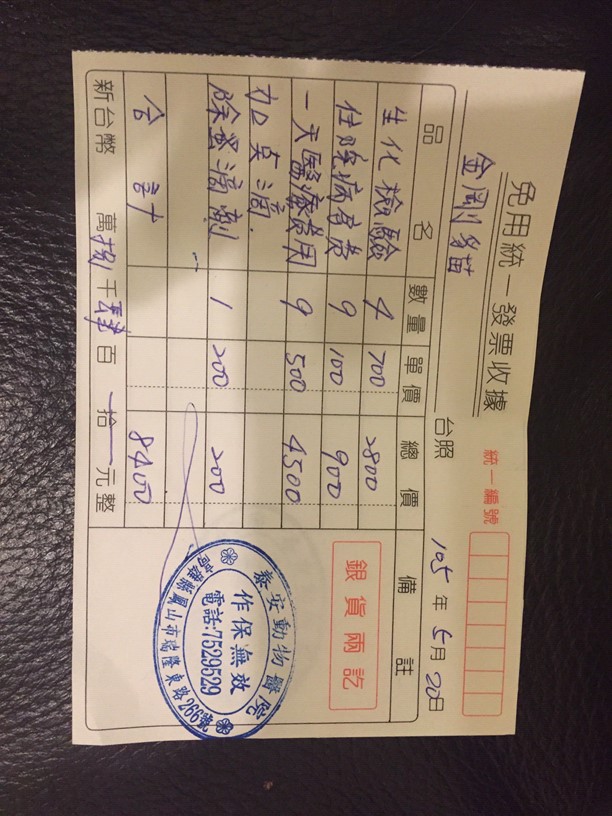 免用統一發票收據
統一編號
金剛多貓 台照 105年5月20日
品名 數量 單價 總價 備註
生化檢驗 4 700 2800
住院病房費 9 100 900
一天醫療費用 9 500 4500
加點滴
除蚤滴劑 1 200 200
合計 8400
新台幣 萬捌千肆百拾元整
銀貨兩訖
泰安動物醫院
作保無效
電話:7529529
高雄縣鳳山市瑞隆東路266號